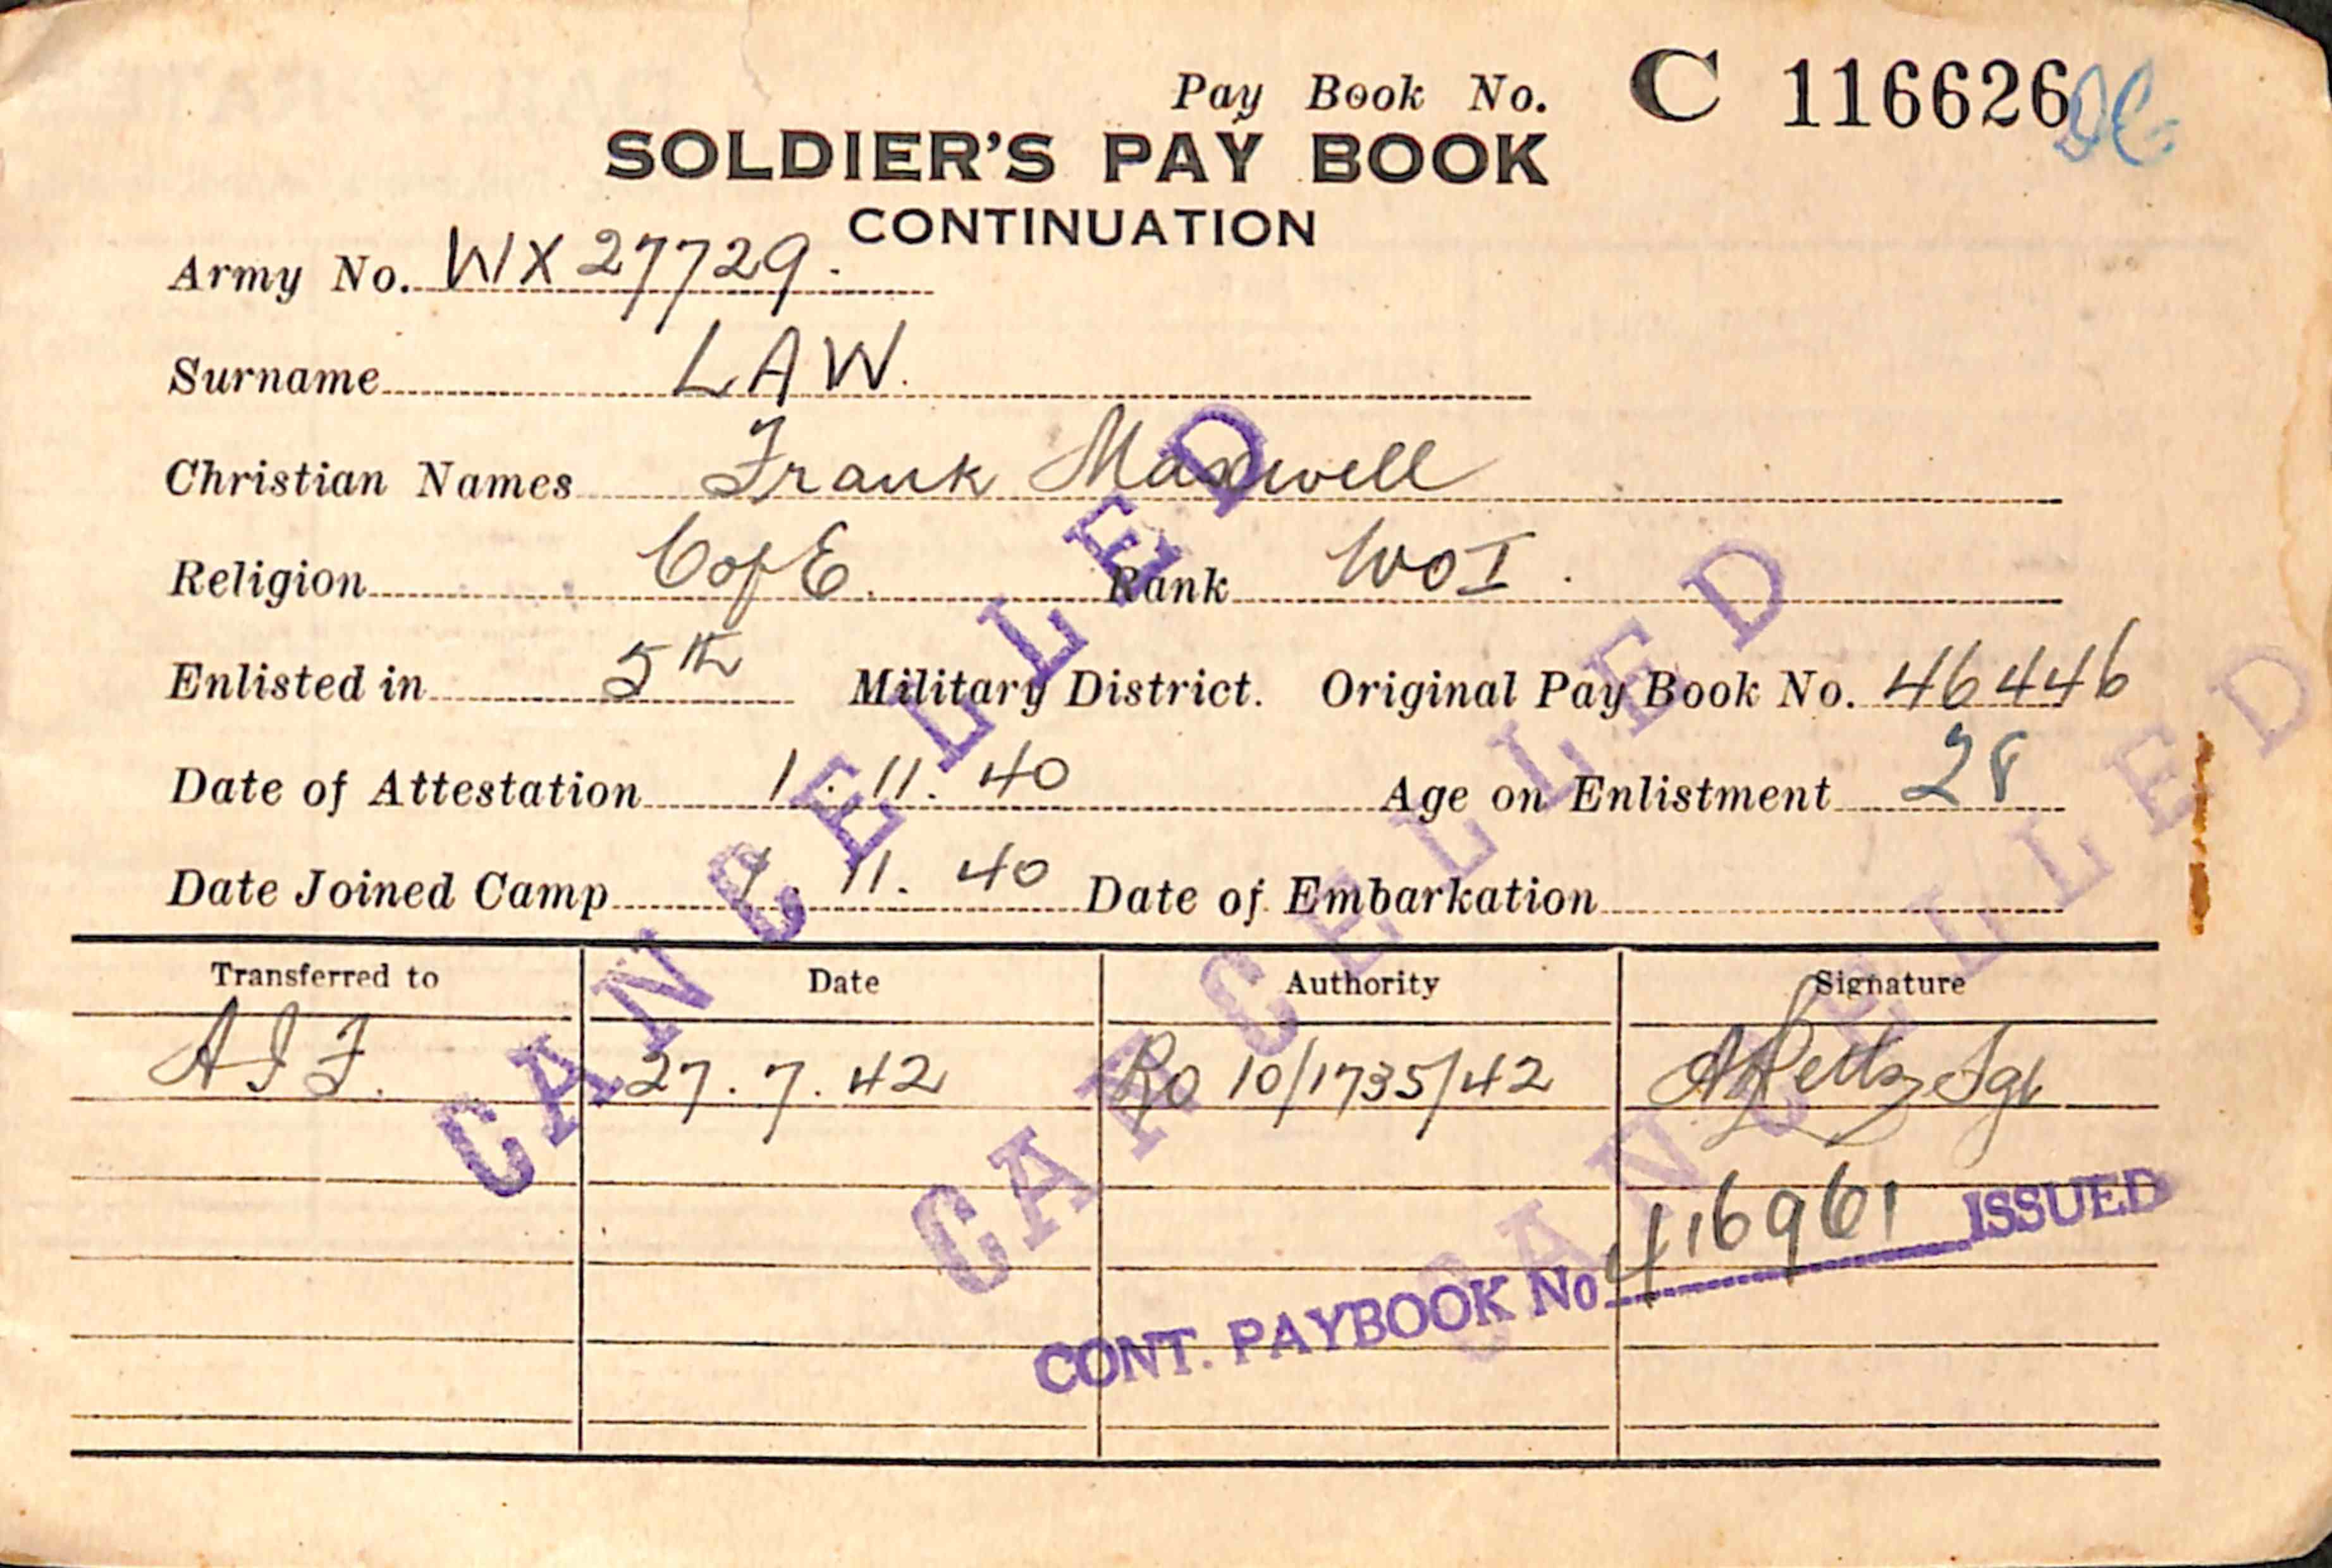 Pay Book No. C 116626
SOLDIER'S PAY BOOK
CONTINUATION
Army No. WX27729.
Surname LAW.
Christian Names Frank Maxwell
Religion C of E. Rank WOI.
Enlisted in 5th Military District. Original Pay Book No. 46446
Date of Attestation 1.11.40 Age on Enlistment 28
Date Joined Camp 11.40 Date of Embarkation
Transferred to Date Authority Signature
A I F. 27.7.42 RO 10/1735/42 Sgt
416961 ISSUED
CONT. PAYBOOK No
CANCELLED
CANCELLED
CANCELLED